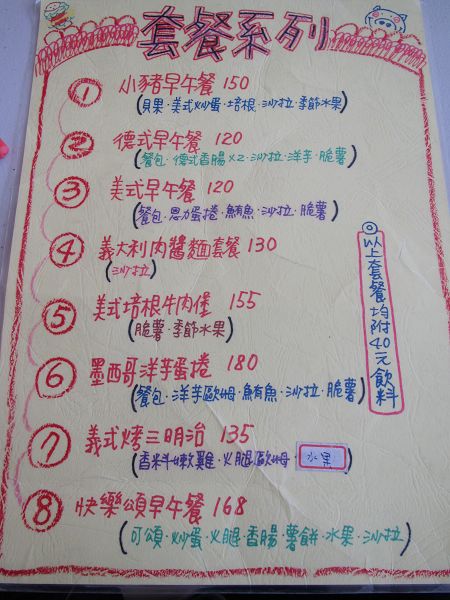 套餐系列
① 小豬早午餐 150
(貝果·美式炒蛋·培根·沙拉·季節水果)
② 德式早午餐 120
(餐包·德式香腸x2·沙拉·洋芋·脆薯)
③ 美式早午餐 120
(餐包·恩力蛋捲·鮪魚·沙拉·脆薯)
④ 義大利肉醬麵套餐 130
(沙拉)
⑤ 美式培根牛肉堡 155
(脆薯·季節水果)
⑥ 墨西哥洋芋蛋捲 180
(餐包·洋芋歐姆·鮪魚·沙拉·脆薯)
⑦ 義式烤三明治 135
(香料嫩雞·火腿歐姆·水果)
⑧ 快樂頌早午餐 168
(可頌·炒蛋·火腿·香腸·薯餅·水果·沙拉)
◎以上套餐均附40元飲料